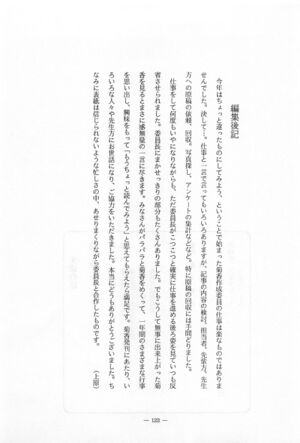 編集後記
今年はちょっと違ったものにしてみよう、ということで始まった菊香作成委員の仕事は楽なものではありま
せんでした。決して…。仕事と一言で言ってもいろいろありますが、記事の内容の検討、担当者、先輩方、先生
方への原稿の依頼、回収。写真探し、アンケートの集計などなど。特に原稿の回収には手間どりました。
仕事をして何度もいやになりながらも、ただ委員長がこつこつと確実に仕事を進める後ろ姿を見ていつも反
省させられました。委員長にまかせっきりの部分もたくさんありました。でもこうして無事に出来上がった菊
香を見るとまさに感無量の一言に尽きます。みなさんがパラパラと菊香をめくって、一年間のさまざまな行事
を思い出し、興味をもって「もうちょっと読んでみよう」と思えてもらえたら満足です。菊香発刊にあたり、い
ろいろな人々や先生方にお世話になり、ご協力をいただきました。本当にどうもありがとうございました。ち
なみに表紙は信じられないような忙しさの中、あせりまくりながら委員長と合作したものです。
（上原）
— 123 —